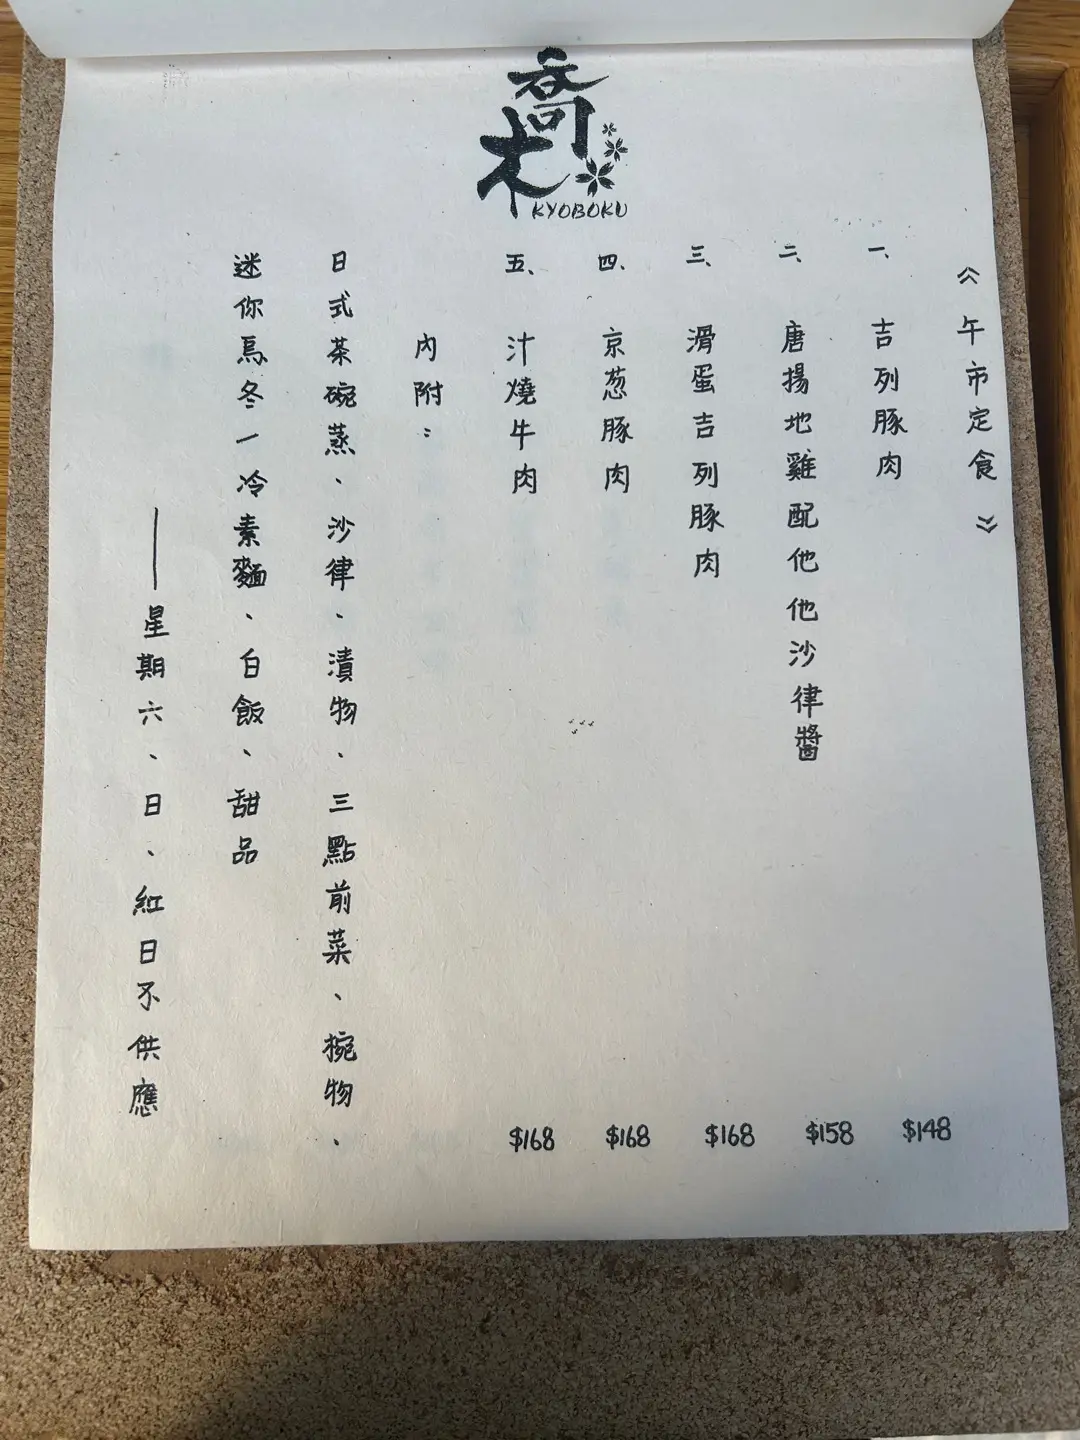 喬木
KYOBOKU
《午市定食》
一、吉列豚肉 $148
二、唐揚地雞配他他沙律醬 $158
三、滑蛋吉列豚肉 $168
四、京葱豚肉 $168
五、汁燒牛肉 $168
內附：
日式茶碗蒸、沙律、漬物、三點前菜、捥物、
迷你烏冬一冷素麵、白飯、甜品
——星期六、日、紅日不供應